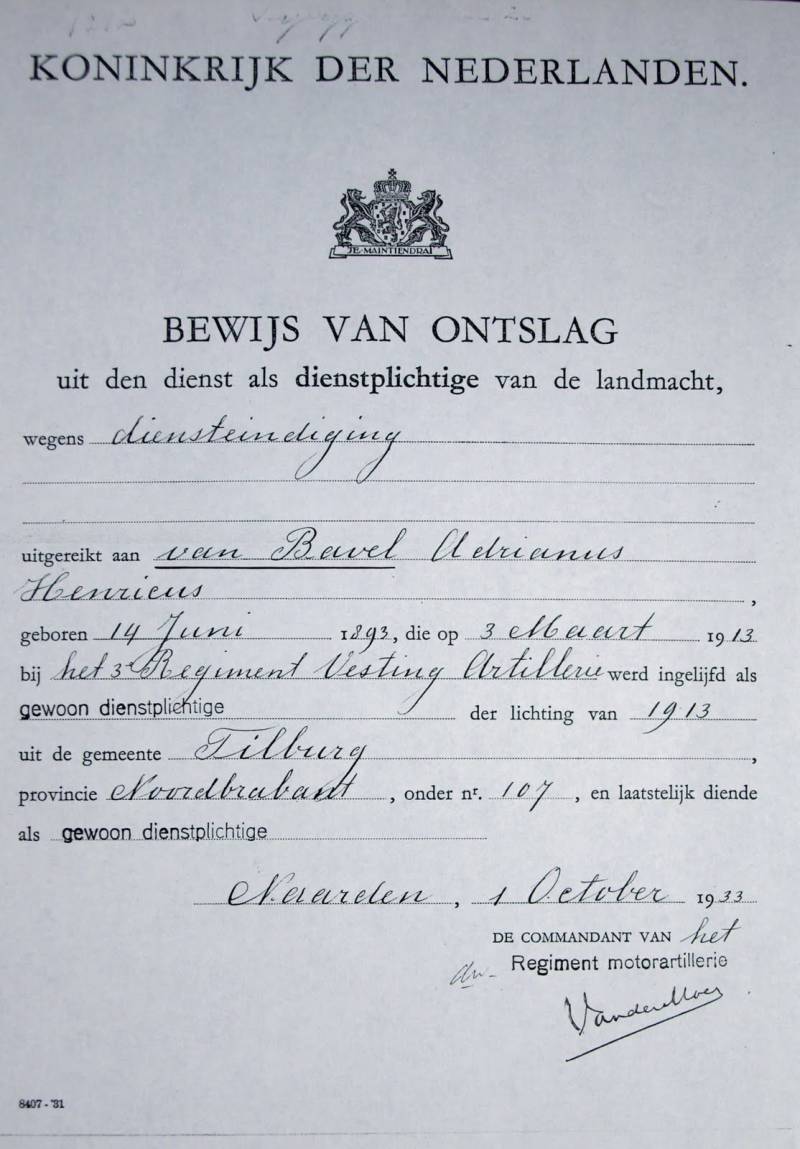 KONINKRIJK DER NEDERLANDEN.
JE MAINTIENDRAI
BEWIJS VAN ONTSLAG
uit den dienst als dienstplichtige van de landmacht,
wegens diensteindiging
uitgereikt aan van Bavel Adrianus
Henricus,
geboren 14 Juni 1893, die op 3 Maart 1913
bij het 3e Regiment Vesting Artillerie werd ingelijfd als
gewoon dienstplichtige der lichting van 1913
uit de gemeente Tilburg,
provincie Noordbrabant, onder nr. 107, en laatstelijk diende
als gewoon dienstplichtige
Naarden, 1 October 1933
DE COMMANDANT VAN het
Regiment motorartillerie
8407-'31